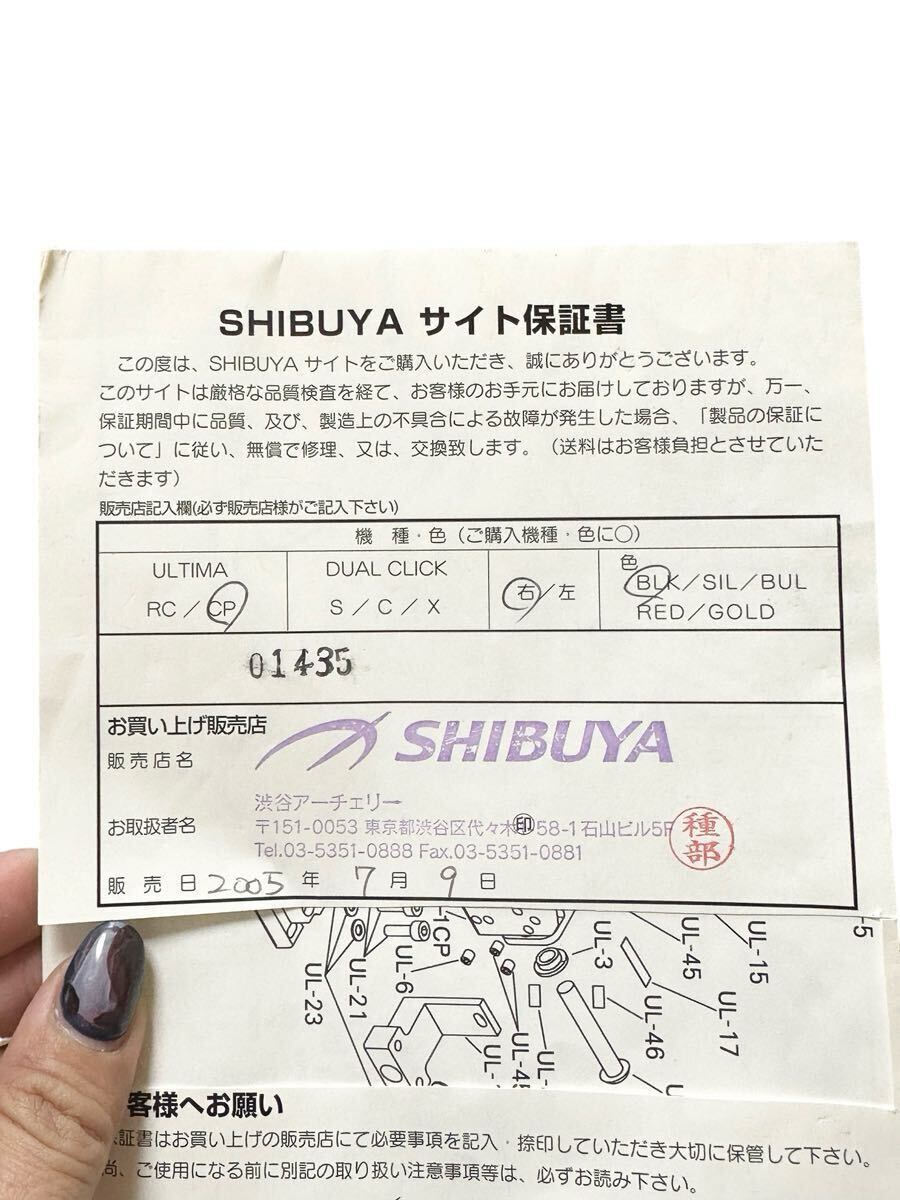 SHIBUYA サイト保証書
この度は、SHIBUYA サイトをご購入いただき、誠にありがとうございます。
このサイトは厳格な品質検査を経て、お客様のお手元にお届けしておりますが、万一、
保証期間中に品質、及び、製造上の不具合による故障が発生した場合、「製品の保証に
ついて」に従い、無償で修理、又は、交換致します。（送料はお客様負担とさせていた
だきます）
販売店記入欄(必ず販売店様がご記入下さい)
機 種・色（ご購入機種・色に○）
ULTIMA
RC／CP
DUAL CLICK
S／C／X
右／左
色
BLK／SIL／BUL
RED／GOLD
01435
お買い上げ販売店
販売店名
SHIBUYA
渋谷アーチェリー
お取扱者名
〒151-0053 東京都渋谷区代々木 印 58-1 石山ビル5F
Tel.03-5351-0888 Fax.03-5351-0881
種部
販 売 日 2005 年 7 月 9 日
UL-23
UL-21
UL-6
-1CP
UL-3
UL-45
UL-15
UL-17
UL-46
客様へお願い
証書はお買い上げの販売店にて必要事項を記入・捺印していただき大切に保管して下さい。
尚、ご使用になる前に別記の取り扱い注意事項等は、必ずお読み下さい。